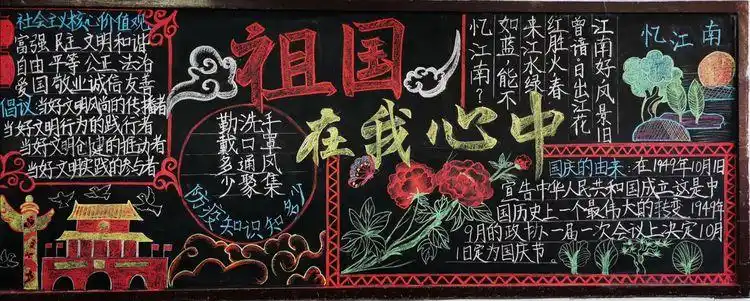 社会主义核心价值观
富强 民主 文明和谐
自由 平等 公正 法治
爱国 敬业诚信友善
倡议 当好文明风尚的传播者
当好文明行为的践行者
当好文明创建的推动者
当好文明实践的参与者
祖国
在我心中
勤洗手
戴口罩
多通风
少聚集
防疫知识知多少
忆江南
江南好风景旧
曾谙·日出江花
红胜火春
来江水绿
如蓝，能不
忆江南？
国庆的由来：在1949年10月1日
宣告中华人民共和国成立这是中
国历史上一个最伟大的转变 1949年
9月的政协一届一次会议上决定10月
1日定为国庆节。